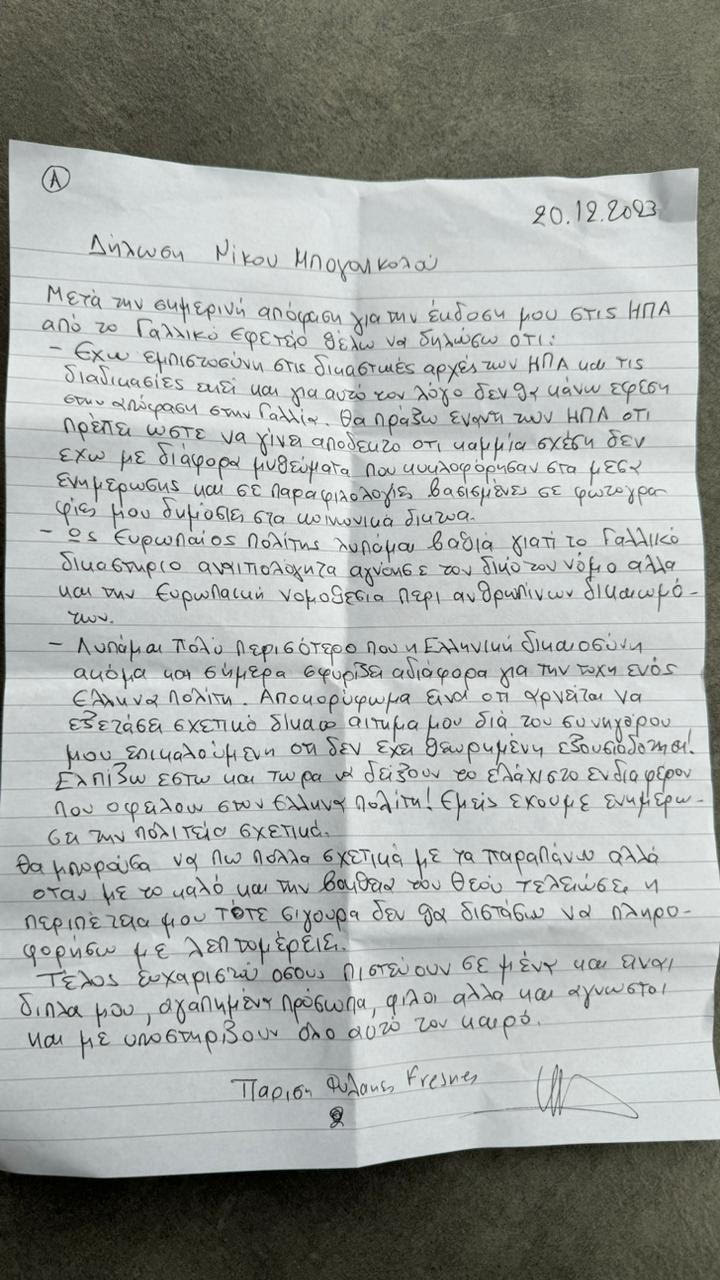 Α
20.12.2023
Δήλωση Νίκου Μπογονικολού
Μετά την σημερινή απόφαση για την έκδοση μου στις ΗΠΑ
από το Γαλλικό Εφετείο θέλω να δηλώσω οτι:
– Εχω εμπιστοσύνη στις δικαστικές αρχές των ΗΠΑ και τις
διαδικασίες εκεί και για αυτό τον λόγο δεν θα κάνω εφεση
στην απόφαση στην Γαλλία. Θα πράξω εναντι των ΗΠΑ οτι
πρέπει ωστε να γίνει αποδεκτο οτι καμμία σχέση δεν
εχω με διάφορα μυθεύματα που κυκλοφόρησαν στα μεσα
ενημερωσης και σε παραφιλολογίες βασισμένες σε φωτογρα-
φίες μου δημόσιες στα κοινωνικά δικτυα.
– Ως Ευρωπαίος πολίτης λυπάμαι βαθιά γιατί το Γαλλικό
δικαστήριο αναιτιολόγητα αγνόησε τον δικό του νόμο αλλα
και την Ευρωπαική νομοθεσία περι ανθρωπίνων δικαιωμά-
των.
– Λυπάμαι πολύ περισότερο που η Ελληνική δικαιοσύνη
ακόμα και σήμερα σφυρίζει αδιάφορα για την τυχη ενός
Ελληνα πολίτη. Αποκορύφωμα ειναι οτι αρνείται να
εξετάσει σχετικό δίκαιο αιτημα μου διά του συνηγόρου
μου επικαλούμενη οτι δεν εχει θεωρημένη εξουσιοδοτηση!
Ελπίζω εστω και τωρα να δείξουν το ελάχιστο ενδιαφέρον
που οφείλουν στον Ελληνα πολίτη! Εμείς εχουμε ενημερω-
σει την πολιτεία σχετικά.
Θα μπορούσα να πω πολλα σχετικά με τα παραπάνω αλλά
οταν με το καλό και την βοηθεια του Θεού τελειώσει η
περιπέτεια μου τότε σιγουρα δεν θα διστάσω να πληρο-
φορήσω με λεπτομέρειες.
Τέλος ευχαριστώ οσους πιστεύουν σε μένα και ειναι
διπλα μου, αγαπημένα πρόσωπα, φιλοι αλλα και αγνωστοι
και με υποστηρίζουν ολο αυτό τον καιρό.
Παρισι Φυλακες Fresnes